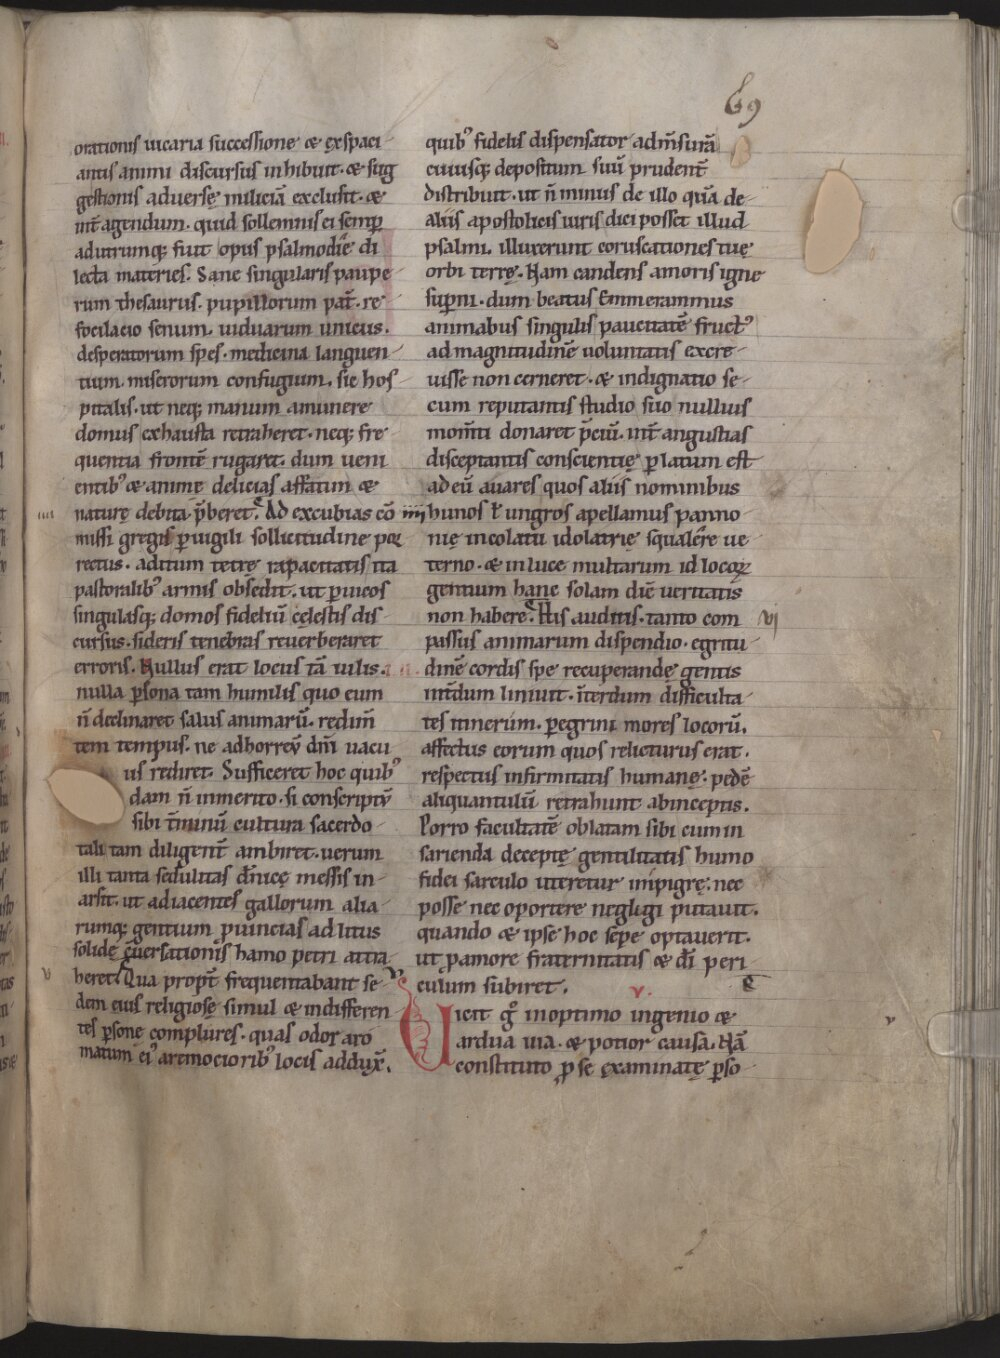 69
orationis uicaria successione & exspaci-
antis animi discursus inhibuit· & sug
gestionis aduersę miliciā exclusit· &
int̄ agendum· quid sollemnis ei semp̲
adutrumq; fuit opus psalmodię di
lecta materies. Sane singularis paupe
rum thesaurus· pupillorum pat̄· re
focilacio senum· uiduarum unicus·
desperatorum spes· medicina languen-
tium· miserorum confugium· sic hos-
pitalis· ut neq; manum amunere
domus exhausta retraheret· neq; fre
quentia frontē rugaret· dum ueni
entibꝰ & animę delicias affatim &
naturę debita p̄beret. Ad excubias cō
missi gregis ꝑuigili sollicitudine por
rectus· aditum tetrę rapacitatis ita
pastoralibꝰ armis obsedit· ut ꝑuicos
singulasq; domos fideliū cęlestis dis
cursus· sideris tenebras reuerberaret
erroris. Nullus erat locus tā uilis·
nulla ꝑsona tam humilis quo eum
n̄ declinaret salus animarū· redim̄
tem tempus· ne adhorreū dn̄i uacu
us rediret. Sufficeret hoc quibꝰ
dam n̄ inmerito· si conscriptū
sibi t̄minū cultura sacerdo-
tali tam diligent̄ ambiret· uerum
illi tanta sedulitas dn̄icę messis in-
arsit· ut adiacentes gallorum alia-
rumq; gentium ꝓuincias ad litus
solidę cōuersationis hamo petri attra-
heret. Qua propt̄ frequentabant se-
dem eius religiosę simul & indifferen
tes ꝑsonę complures· quas odor aro
matum eiꝰ aremocioribꝰ locis addux̄.
quibꝰ fidelis dispensator adm̄surā
cuiusq; depositum suū prudent̄
distribuit· ut n̄ minus de illo quā de-
aliis apostolicis uiris dici posset illud
psalmi. illuxerunt coruscationes tuę
orbi terrę. Nam candens amoris igne
suꝑni· dum beatus Emmerammus
animabus singulis paucitatē fructꝰ
ad magnitudinē uoluntatis excre-
uisse non cerneret· & indignatio se-
cum reputantis studio suo nullius
mom̄ti donaret p̄ciū· int̄ angustias
disceptantis conscientię ꝑlatum est
ad eū auares quos aliis nominibus
iiii hunos ł ungros apellamus panno-
nię incolatu idolatrię squalere ue-
terno· & in luce multarum id locoꝝ
gentium hanc solam diē ueritatis
non habere. His auditis· tanto com vi
passus animarum dispendio· egritu-
dinē cordis spe recuperandę gentis
int̄dum liniuit· īterdum difficulta-
tes itinerum· peregrini mores locorū·
affectus eorum quos relicturus erat·
respectus infirmitatis humanę· pedē
aliquantulū retrahunt abinceptis.
Porro facultatē oblatam sibi cum in
sarienda deceptę gentilitatis humo
fidei sarculo uteretur impigrę· nec
posse nec oportere negligi putauit·
quando & ipse hoc sepe optauerit·
ut ꝓamore fraternitatis & dī peri-
culum subiret. v.
Vicit gͦ inoptimo ingenio &
ardua uia· & potior causa. Nā
constituto ꝓ se examinatę ꝑso-